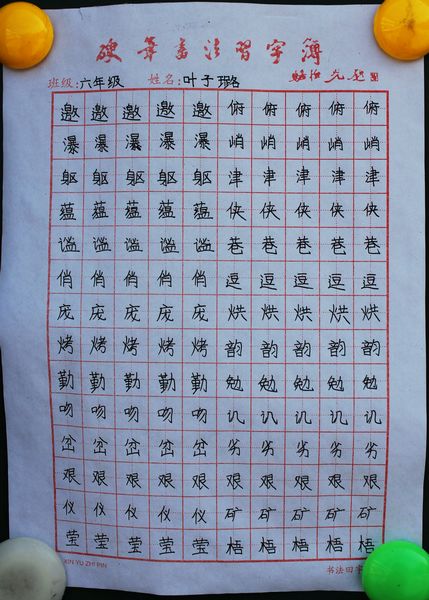 硬筆書法習字簿
班级:六年级 姓名:叶子璐
邀邀邀邀邀俯俯俯俯俯
瀑瀑瀑瀑瀑峭峭峭峭峭
躯躯躯躯躯津津津津津
蕴蕴蕴蕴蕴侠侠侠侠侠
谧谧谧谧谧巷巷巷巷巷
俏俏俏俏俏逗逗逗逗逗
庞庞庞庞庞烘烘烘烘烘
烤烤烤烤烤韵韵韵韵韵
勤勤勤勤勤勉勉勉勉勉
吻吻吻吻吻讥讥讥讥讥
岔岔岔岔岔劣劣劣劣劣
艰艰艰艰艰艰艰艰艰艰
仪仪仪仪仪矿矿矿矿矿
莹莹莹莹莹梧梧梧梧梧
XIN YU ZHI PIN 书法田字